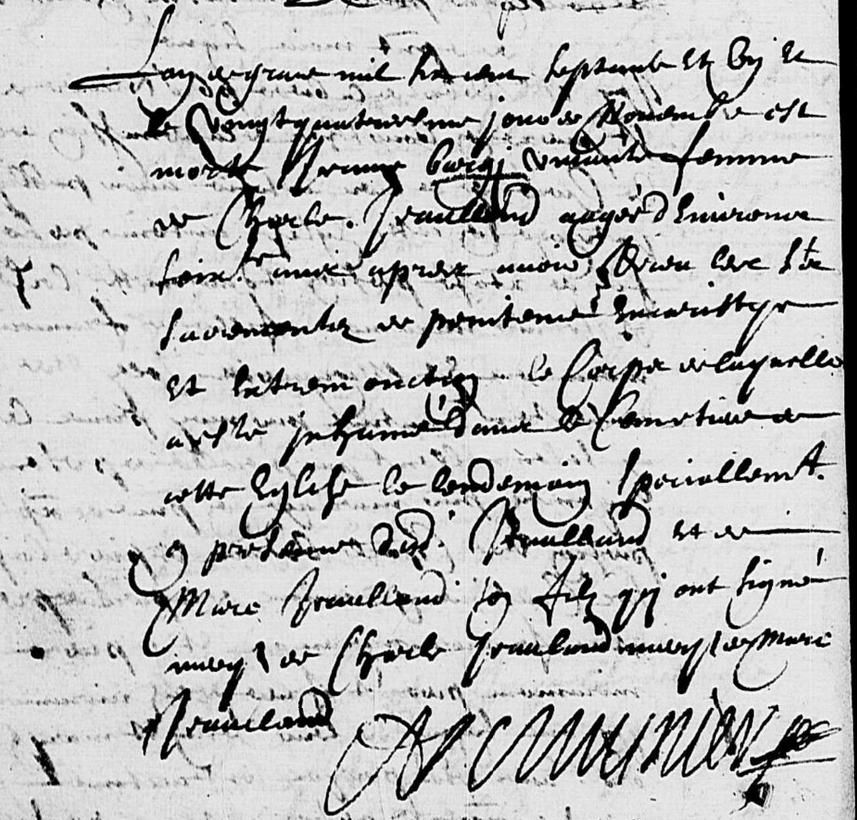 Lan de grace mil six cent septante et six et
le vingt quatriesme jour de Novembre est
morte Jeanne vivante femme
de Charle Jeaulland aagée d'environ
soix.te ans apres avoir receu les Sts
Sacrements de penitence Eucaristye
et Extrem onction le Corps de laquelle
a esté inhumé dans le Cemetiere de
cette Eglise le lendemain speciallemt.
en presence dud. Jeaulland et de
Marc Jeaulland son filz qui ont signé
de Charle Jeauland marc
Jeaueland